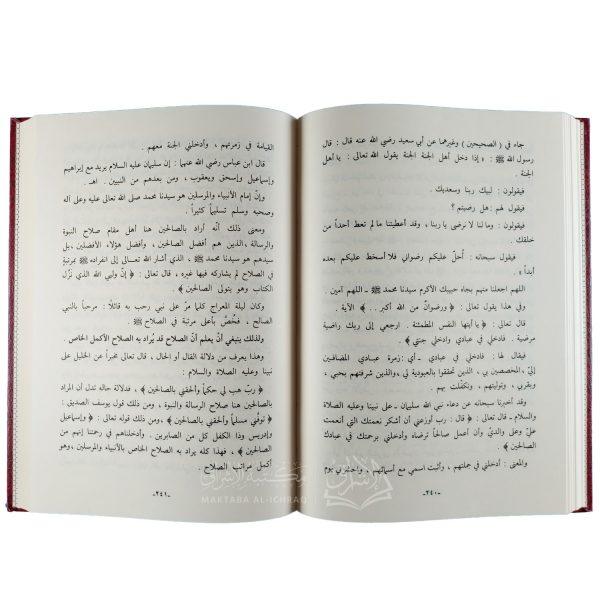 جاء في ( الصحيحين ) وغيرهما عن أبي سعيد رضي الله عنه قال : قال
رسول الله ﷺ : « إذا دخل أهل الجنة الجنة يقول الله تعالى : يا أهل
الجنة .
فيقولون : لبيك ربنا وسعديك .
فيقول لهم : هل رضيتم ؟
فيقولون : وما لنا لا نرضى يا ربنا ، وقد أعطيتنا ما لم تعط أحداً من
خلقك .
فيقول سبحانه : أحلّ عليكم رضواني فلا أسخط عليكم بعده
أبداً » .
اللهم اجعلنا منهم بجاه حبيبك الأكرم سيدنا محمد ﷺ ـ اللهم آمين .
وفي هذا يقول تعالى : ﴿ ورضوانٌ من الله أكبر .. ﴾ الآية .
قال تعالى : ﴿ يا أيتها النفس المطمئنة . ارجعي إلى ربك راضية
مرضية . فادخلي في عبادي وادخلي جنتي ﴾ .
فيقال لها : فادخلي في عبادي ـ أي : زمرة عبادي المضافين
إليّ ، المخصصين بي ، الذين تحققوا بالعبودية لي ، والذين شرفتهم بحبي ،
وبقربي ، وتوليتهم ، وتكفّلت بهم .
وقد أخبرنا سبحانه عن دعاء نبي الله سليمان ـ على نبينا وعليه الصلاة
والسلام ـ قال تعالى : ﴿ قال : رب أوزعني أن أشكر نعمتك التي أنعمت
عليّ وعلى والديّ وأن أعمل صالحاً ترضاه وأدخلني برحمتك في عبادك
الصالحين ﴾ .
والمعنى : أدخلني في جملتهم ، وأثبت اسمي مع أسمائهم ، واحشرني يوم
-٢٤٠-
القيامة في زمرتهم ، وأدخلني الجنة معهم .
قال ابن عباس رضي الله عنهما : إن سليمان عليه السلام يريد مع إبراهيم
وإسماعيل وإسحق ويعقوب ، ومن بعدهم من النبيين . اهـ .
وإنّ إمام الأنبياء والمرسلين هو سيدنا محمد صلى الله تعالى عليه وعلى آله
وصحبه وسلم تسليماً كثيراً .
ومعنى ذلك أنه أراد بالصالحين هنا أهل مقام صلاح النبوة
والرسالة ، الذين هم أفضل الصالحين ، وأفضل هؤلاء الأفضلين ، بل
سيدهم هو سيدنا محمد ﷺ ، الذي أشار الله تعالى إلى انفراده ﷺ بمرتبةٍ
في الصلاح لم يشاركه فيها غيره ، قال تعالى : ﴿ إنّ وليي الله الذي نزّل
الكتاب وهو يتولى الصالحين ﴾ .
وكان ليلة المعراج كلما مرّ على نبي رحب به قائلاً : مرحباً بالنبي
الصالح ، فخُصّ بأعلى مرتبة في الصلاح ﷺ .
ولذلك ينبغي أنّ يعلم أنّ الصلاح قد يُراد به الصلاح الأكمل الخاص .
وهذا يعرف من دلالة القال أو الحال ، قال تعالى مخبراً عن الخليل على
نبينا وعليه الصلاة والسلام :
﴿ ربّ هب لي حكماً وألحقني بالصالحين ﴾ ، فدلالة حاله تدل أن المراد
بالصالحين هنا صلاح الرسالة والنبوة ، ومن ذلك قول يوسف الصديق :
﴿ توفّني مسلماً وألحقني بالصالحين ﴾ ، ومن ذلك قوله تعالى : ﴿ وإسماعيل
وإدريس وذا الكفل كل من الصابرين . وأدخلناهم في رحمتنا إنهم من
الصالحين ﴾ ، فهذا كله يراد به الصلاح الخاص بالأنبياء والمرسلين ، وهو
أكمل مراتب الصلاح .
-٢٤١-
مكتبة الإشراق
MAKTABA AL-ICHRAQ